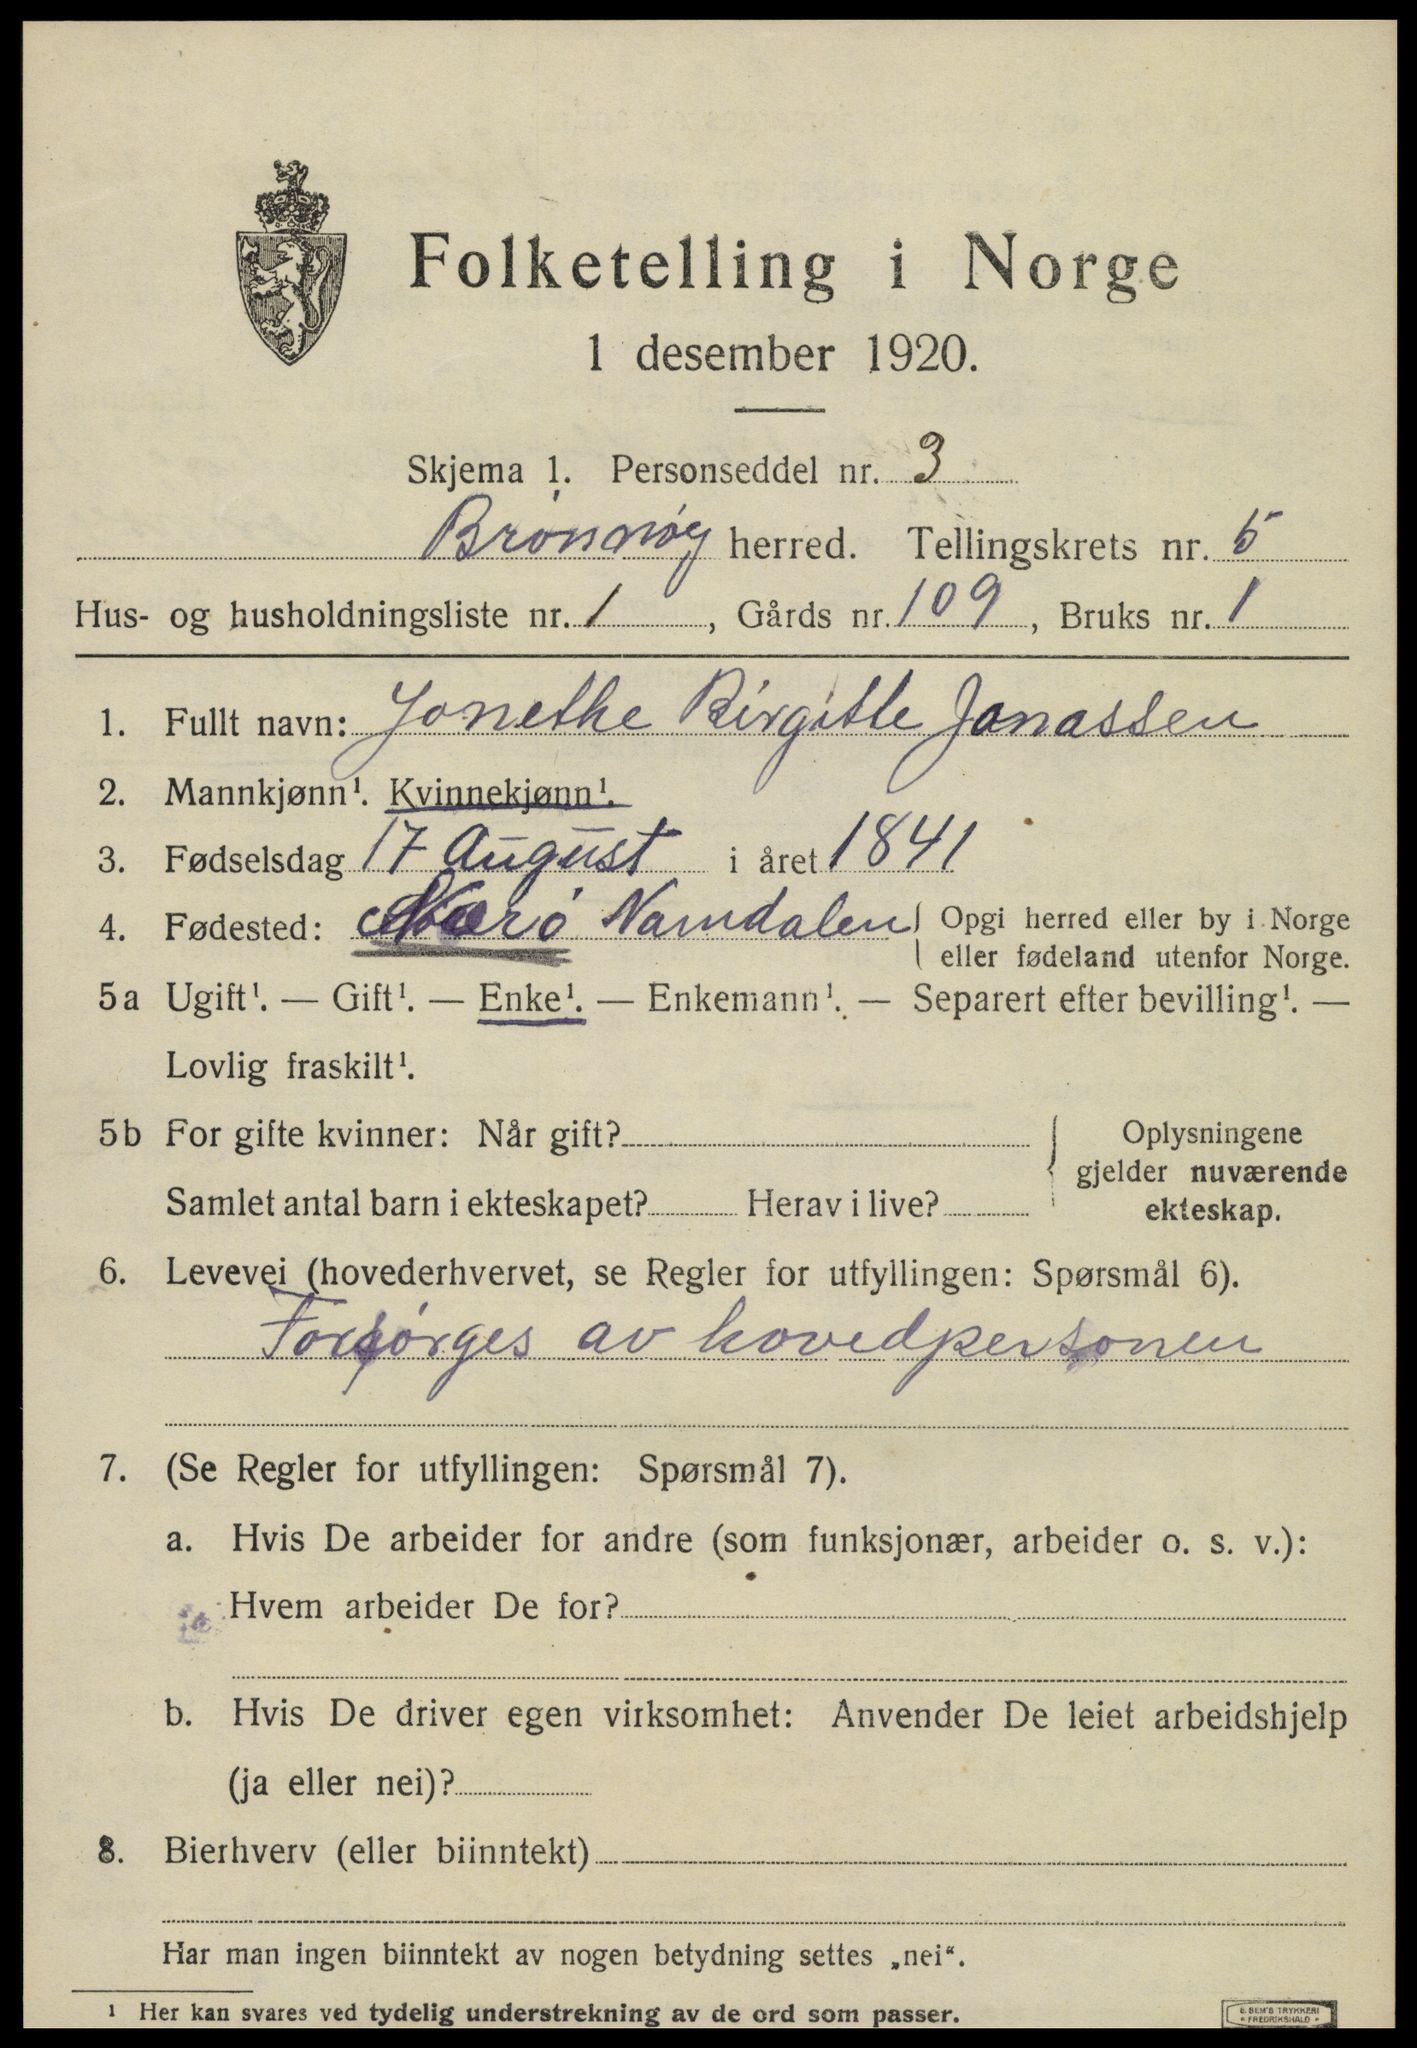 Folketelling i Norge
1 desember 1920.
Skjema 1. Personseddel nr. 3
Brønnøy herred. Tellingskrets nr. 5
Hus- og husholdningsliste nr. 1, Gårds nr. 109, Bruks nr. 1
1. Fullt navn: Jonethe Birgitte Jonassen
2. Mannkjønn¹. Kvinnekjønn¹.
3. Fødselsdag 17 August i året 1841
4. Fødested: Nærø Namdalen Opgi herred eller by i Norge
eller fødeland utenfor Norge.
5a Ugift¹. — Gift¹. — Enke¹. — Enkemann¹. — Separert efter bevilling¹. —
Lovlig fraskilt¹.
5b For gifte kvinner: Når gift? Oplysningene
gjelder nuværende
Samlet antal barn i ekteskapet? Herav i live? ekteskap.
6. Levevei (hovederhvervet, se Regler for utfyllingen: Spørsmål 6).
Forsørges av hovedpersonen
7. (Se Regler for utfyllingen: Spørsmål 7).
a. Hvis De arbeider for andre (som funksjonær, arbeider o. s. v.):
Hvem arbeider De for?
b. Hvis De driver egen virksomhet: Anvender De leiet arbeidshjelp
(ja eller nei)?
8. Bierhverv (eller biinntekt)
Har man ingen biinntekt av nogen betydning settes „nei“.
¹ Her kan svares ved tydelig understrekning av de ord som passer.
E. SEM'S TRYKKERI
FREDRIKSHALD